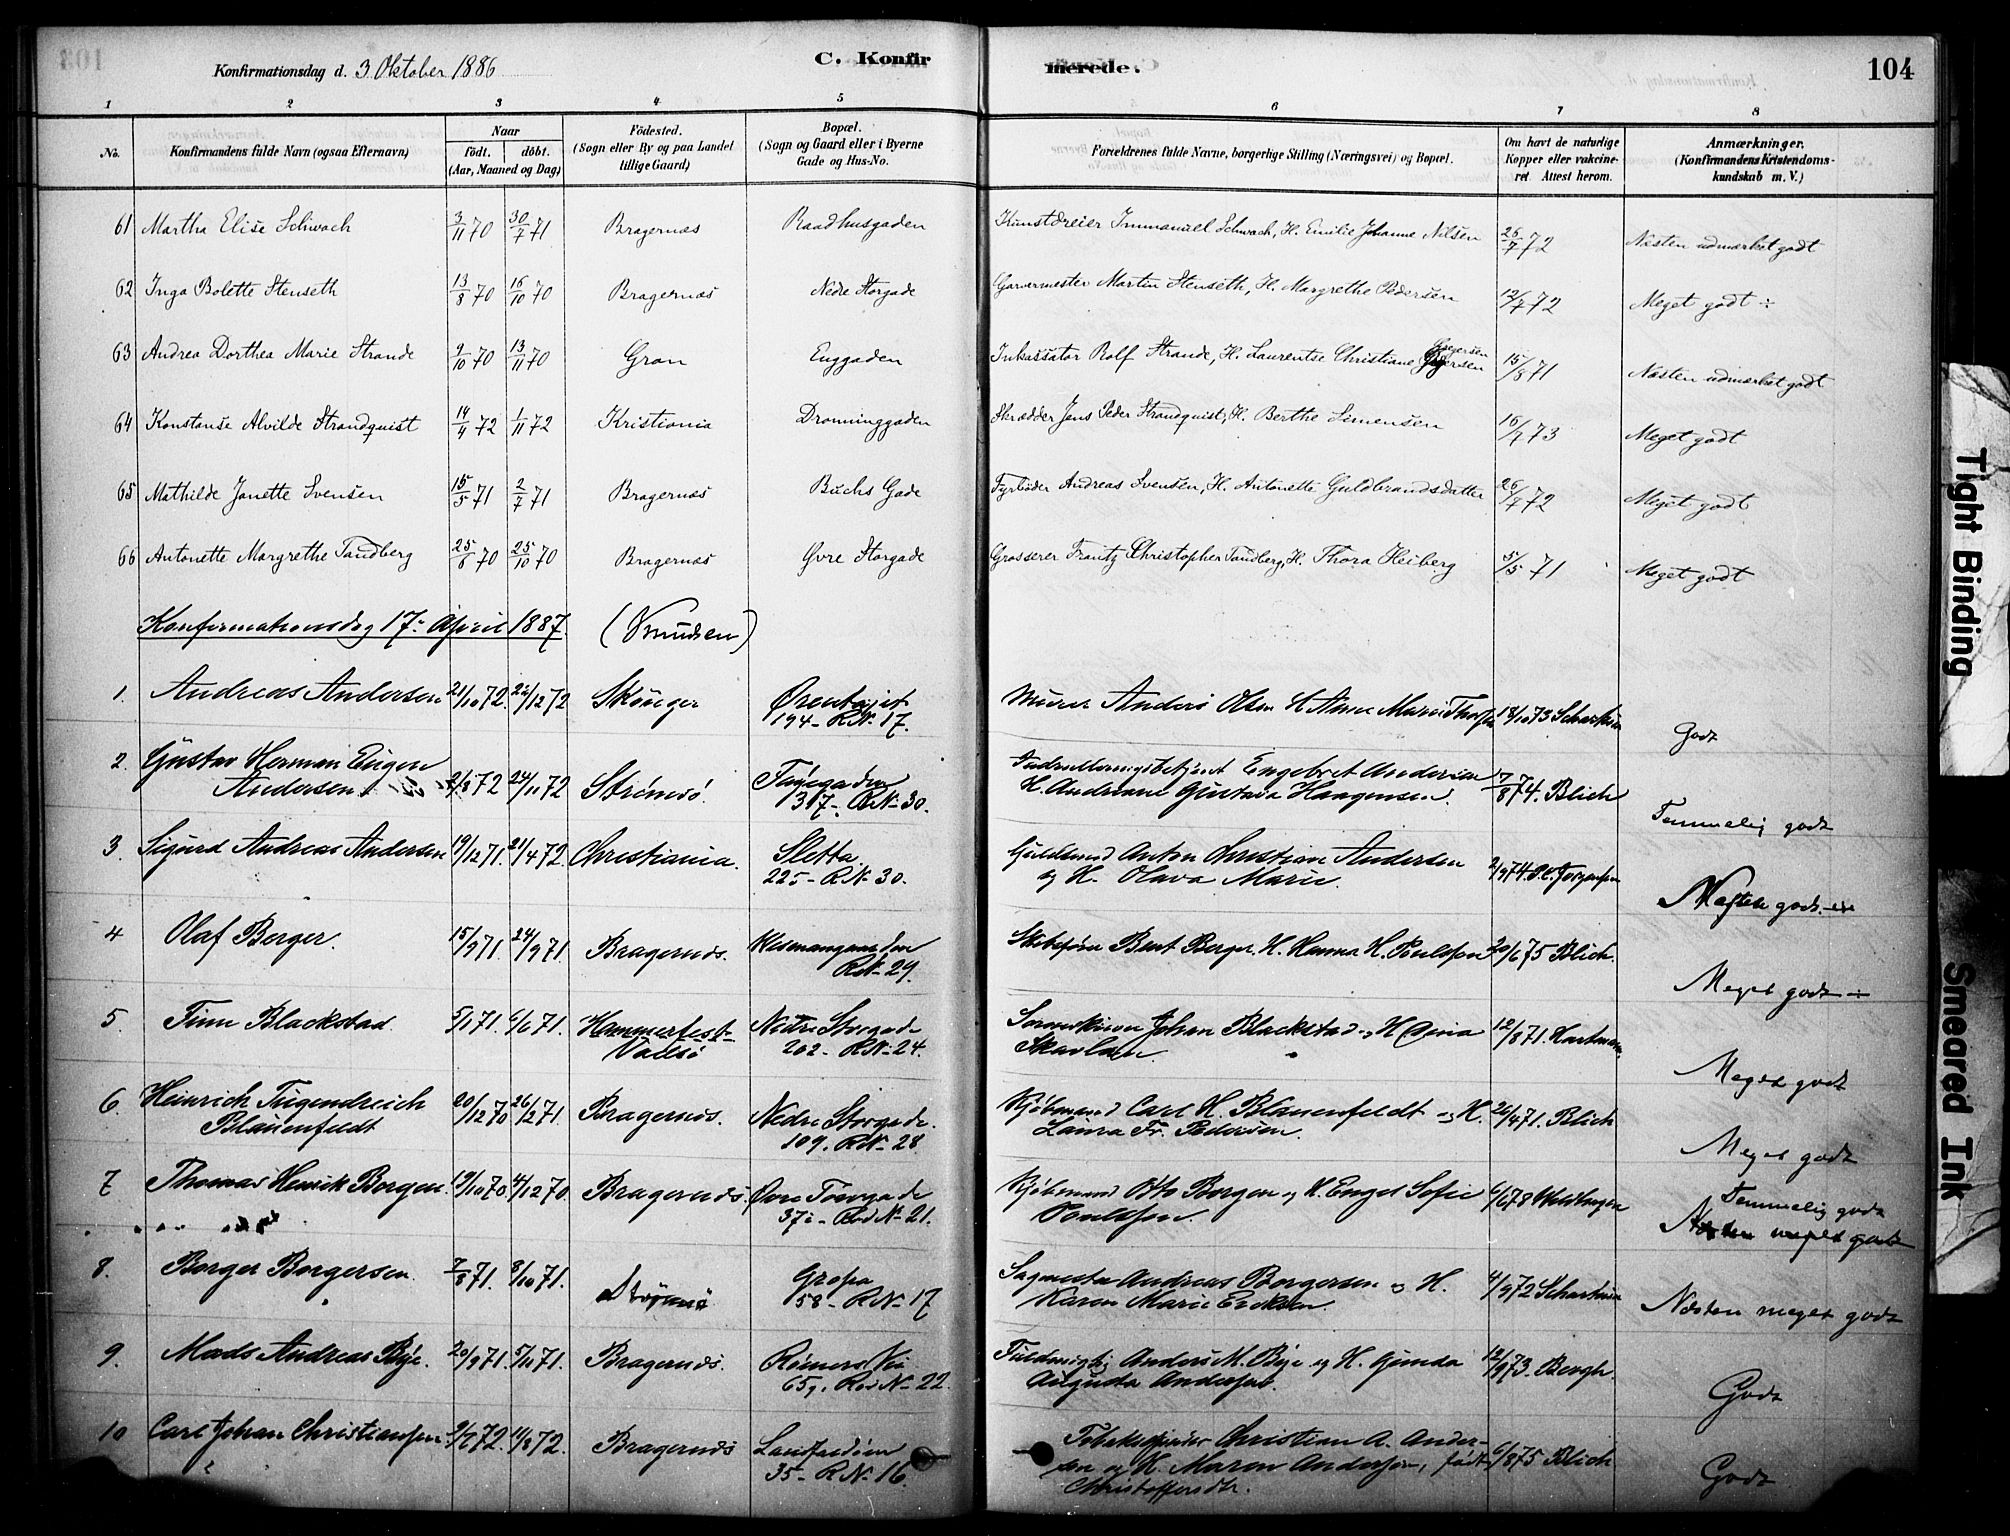 Konfirmationsdag d. 3 Oktober 1886
C. Konfirmerede.
104
1 2 3 4 5 6 7 8
No.
Konfirmandens fulde Navn (ogsaa Efternavn)
Naar födt. döbt. (Aar, Maaned og Dag)
Födested. (Sogn eller By og paa Landet tillige Gaard)
Bopæl. (Sogn og Gaard eller i Byerne Gade og Hus-No.
Forældrenes fulde Navne, borgerlige Stilling (Næringsvei) og Bopæl.
Om havt de naturlige Kopper eller vakcineret Attest herom.
Anmærkninger. (Konfirmandens Kristendomskundskab m. V.)
61 Martha Elise Schwach 3/11 70 30/7 71 Bragernæs Raadhusgaden Kunstdreier Immanuel Schwach, H. Emilie Johanne Nilsen 26/7 72 Næsten udmærket godt
62 Inga Bolette Stenseth 13/8 70 16/10 70 Bragernæs Nedre Storgade Garvermester Martin Stenseth, H. Margrethe Pedersen 12/7 72 Meget godt ÷
63 Andrea Dorthea Marie Strande 9/10 70 13/11 70 Gran Enggaden Inkassator Rolf Strande, H. Laurentse Christiane 15/8 71 Næsten udmærket godt
64 Konstanse Alvilde Strandquist 14/4 72 1/11 72 Kristiania Dronninggaden Skrædder Jens Peder Strandquist, H. Berthe Simensen 16/7 73 Meget godt
65 Mathilde Janette Svensen 15/5 71 2/7 71 Bragernæs Buchs Gade Fyrbøder Andreas Svensen, H. Antonette Guldbrandsdatter 26/7 72 Meget godt
66 Antonette Margrethe Tandberg 25/8 70 25/10 70 Bragernæs Øvre Storgade Grosserer Frantz Christopher Tandberg, H. Thora Heiberg 5/5 71 Meget godt
Konfirmationsdag 17de April 1887. (Knudsen)
1. Andreas Andersen 21/10 72. 22/12 72 Skouger
194 - R.N. 17.
Murer Anders Olsen H. Anne Marie 18/10 73 Godt
2. Gustav Herman Eugen
Andersen 2/8 72 24/11 72 Strømsø.
317 - R.N. 30.
Engebret Andersen
H. Andreane Gustava Haagensen. 7/8 74. Blich Temmelig godt
3. Sigurd Andreas Andersen 19/12 71. 21/4 72. Christiania. Sletta.
225 - R.N. 30.
Guldsmed Anton Christian Andersen
og H. Olava Marie. 2/9 74.
4 Olaf Berger. 15/9 71. 24/9 71. Bragernæs.
R.N. 29.
Bent Berger, H. Hanna H. Poulsson 20/6 75 Blich. Meget godt ÷
5. Finn Blackstad 5/1 71. 6/6 71. Hammerfest
Nedre Storgade
202 - R.N. 24.
Johan Blackstad og H.
12/8 71. Hartmann Meget godt
6. Heinrich Tugendreich
Blauenfeldt 20/12 70 26/2 71. Bragernæs. Nedre Storgade.
109. R.N. 28.
Kjøbmand Carl H. Blauenfeldt og H.
Laura Fr. Pedersen. 26/4 71. Blich Meget godt
7 Thomas Henrik Borgen. 19/10 70. 4/12 70. Bragernæs. Øvre Torvgade
37 - Rod N. 21.
Kjøbmand Otto Borgen og H. Engel Sofie
Poulsson. 6/6 78 Temmelig godt
Næsten meget godt
8. Borger Borgersen 7/8 71. 8/10 71. Strømsø
58 - R.N. 17
Sagmester Andreas Borgersen og H.
Karen Marie Eriksen. 4/9 72 Næsten meget godt
9. Mads Andreas Bye. 20/9 71. 5/11 71. Bragernæs. Rømers Vei
65, Rod N. 22.
Fuldmægtig Anders M. Bye og H. Gunda
Augusta Andersen. 12/9 73. Bergh. Godt
10 Carl Johan Christiansen 9/7 72. 11/8 72. Bragernæs
35 - R.N. 16.
Christian A. Ander-
sen og H. Maren Andersen, født
Christoffersdtr. 6/8 75 Blich Godt
Tight Binding
Smeared Ink